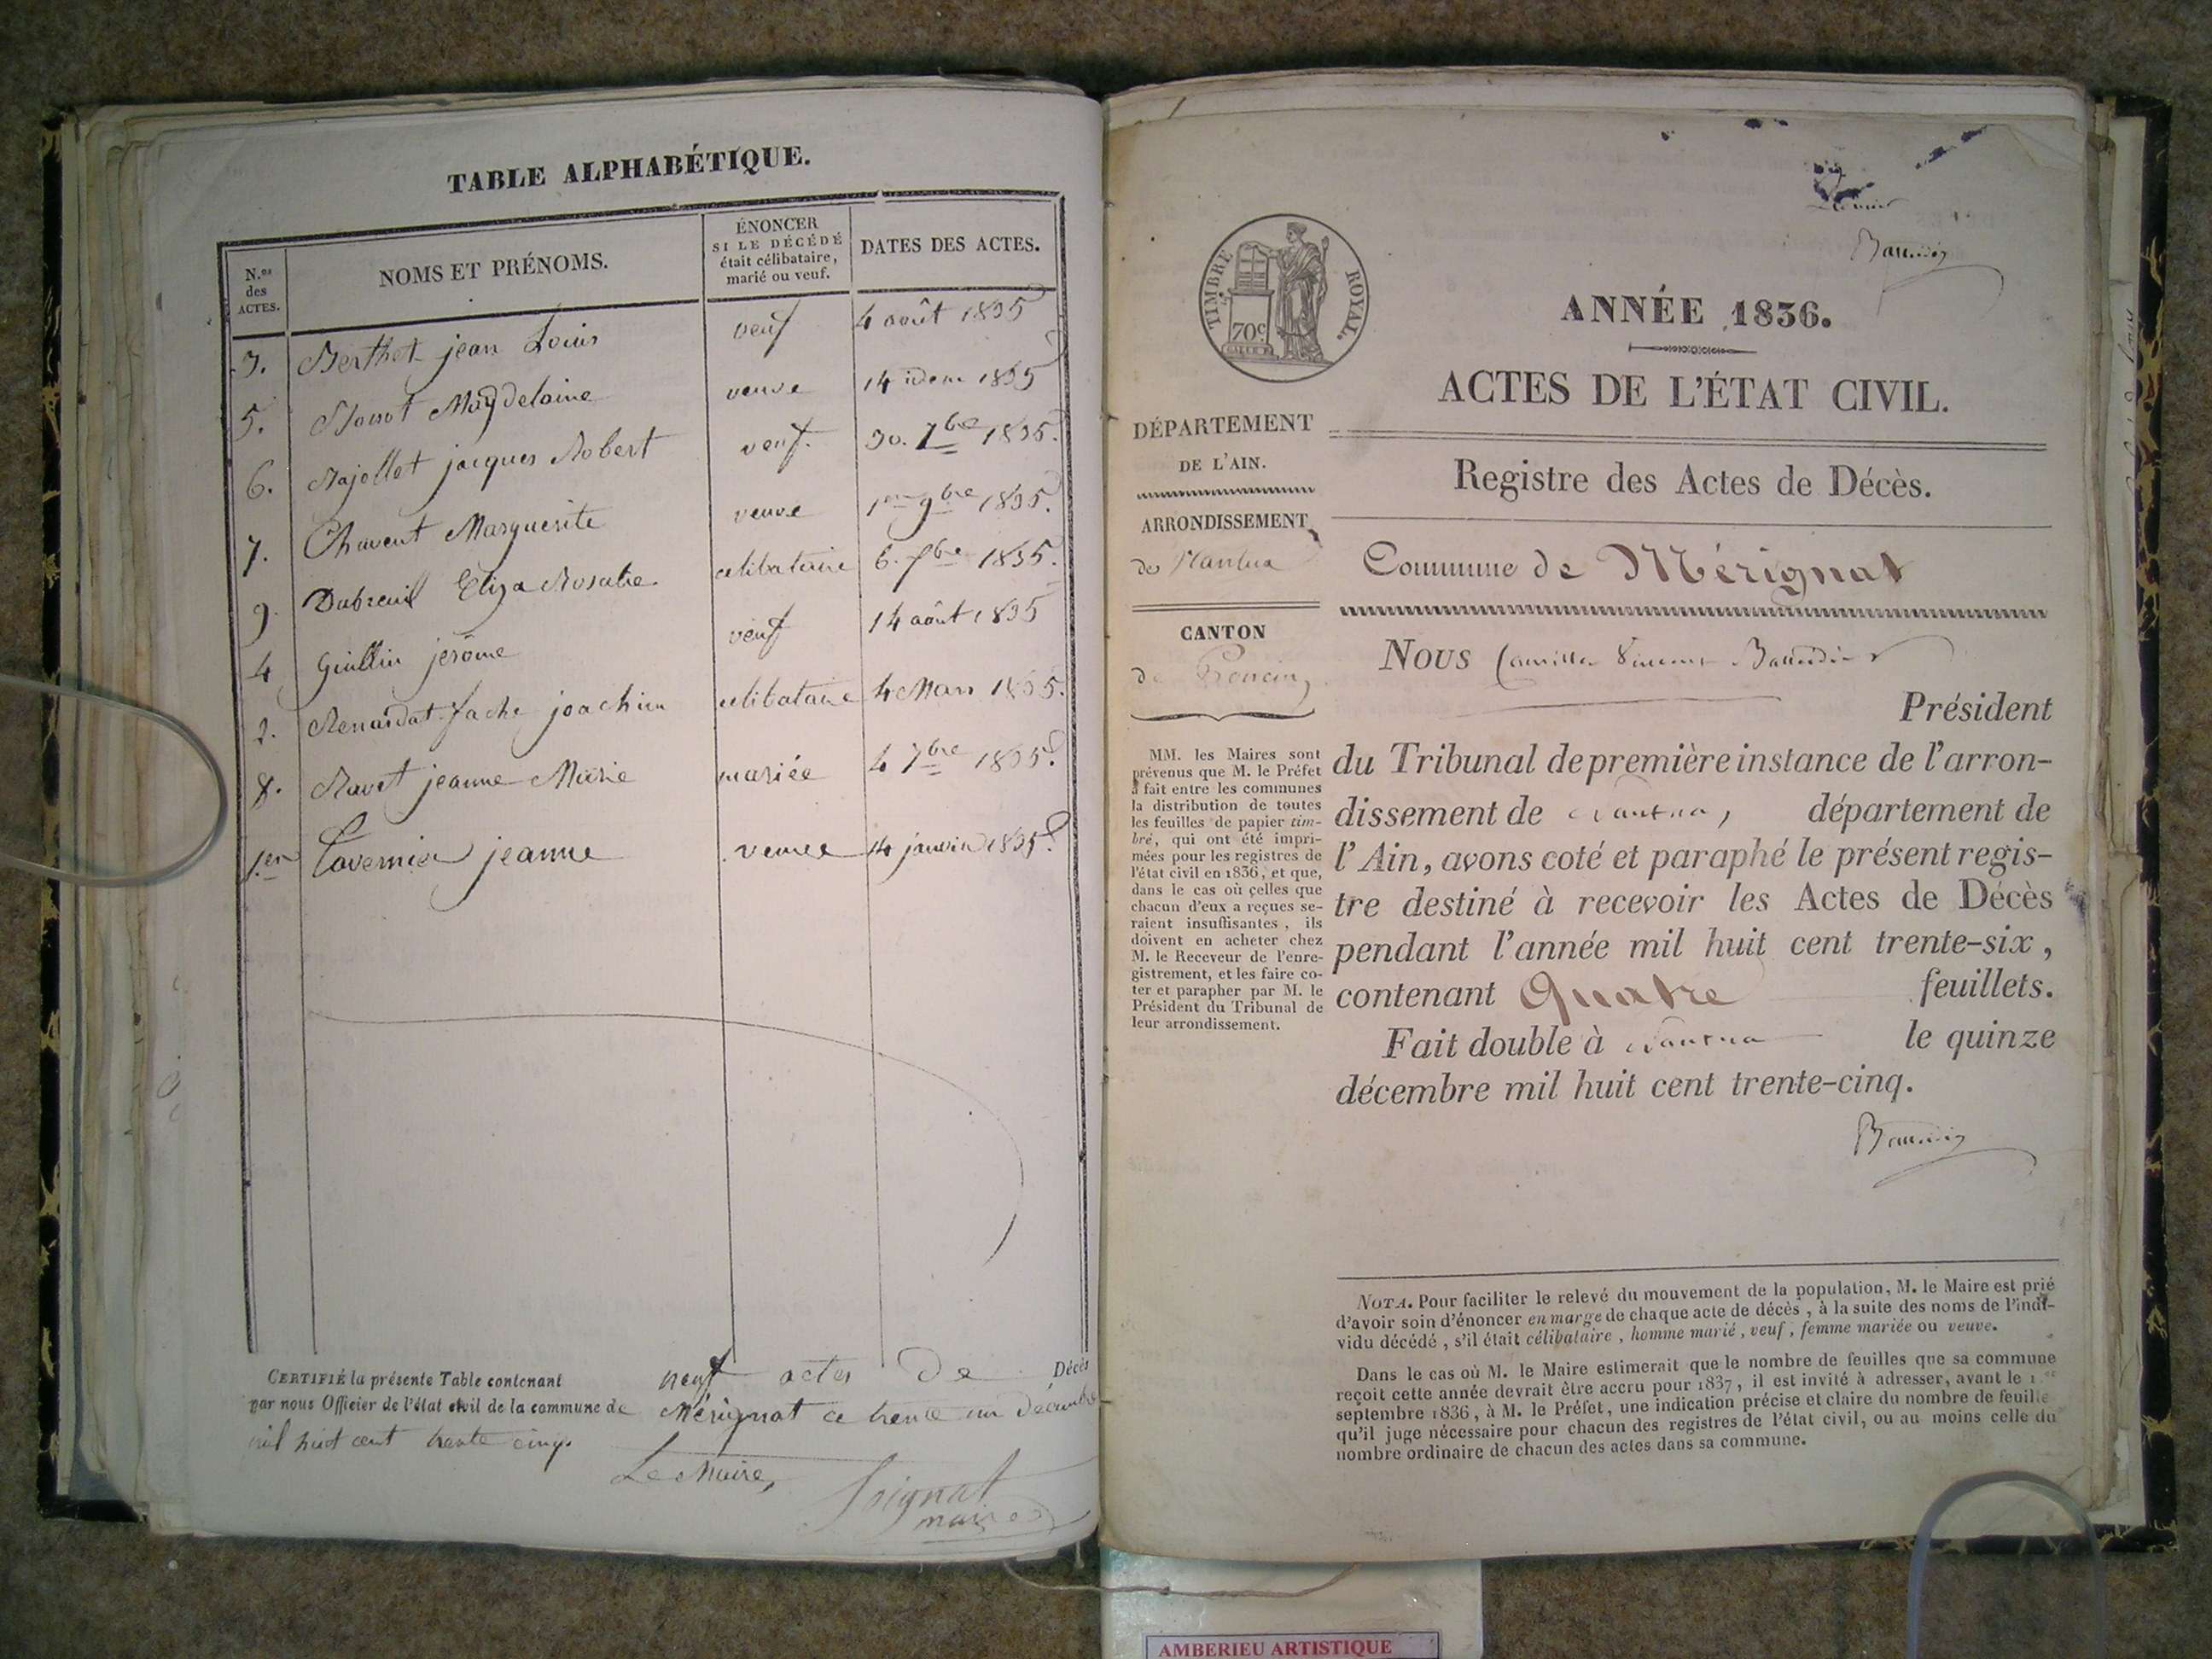 TABLE ALPHABÉTIQUE.
N.os des ACTES.
NOMS ET PRÉNOMS.
ÉNONCER SI LE DÉCÉDÉ était célibataire, marié ou veuf.
DATES DES ACTES.
3. Berthet jean Louis veuf 4 août 1835
5. Magdelaine veuve 14 idem 1835
6. jacques Robert veuf. 30. 7bre 1835.
7. Chavent Marguerite veuve 1er 9bre 1835.
9. Dubreuil Eliza Rosalie celibataire 6. 1835.
4 Guillin jérôme veuf 14 août 1835
2. joachim celibataire 4 Mars 1835.
8. Ravet jeanne Marie mariée 4 7bre 1835.
1.er Tavernier jeanne veuve 14 janvier 1835.
CERTIFIÉ la présente Table contenant neuf actes de Décès
par nous Officier de l'état civil de la commune de Mérignat ce trente un décembre
mil huit cent trente cinq.
Le Maire,
maire
TIMBRE ROYAL.
70c
ANNÉE 1836.
ACTES DE L'ÉTAT CIVIL.
DÉPARTEMENT
DE L'AIN.
Registre des Actes de Décès.
ARRONDISSEMENT
de Nantua
Commune de Mérignat
CANTON
de Poncin
MM. les Maires sont
prévenus que M. le Préfet
a fait entre les communes
la distribution de toutes
les feuilles de papier tim-
bré, qui ont été impri-
mées pour les registres de
l'état civil en 1836, et que,
dans le cas où celles que
chacun d'eux a reçues se-
raient insuffisantes, ils
doivent en acheter chez
M. le Receveur de l'enre-
gistrement, et les faire co-
ter et parapher par M. le
Président du Tribunal de
leur arrondissement.
Nous Camille Vincent
Président
du Tribunal de première instance de l'arron-
dissement de Nantua, département de
l'Ain, avons coté et paraphé le présent regis-
tre destiné à recevoir les Actes de Décès
pendant l'année mil huit cent trente-six,
contenant Quatre feuillets.
Fait double à Nantua le quinze
décembre mil huit cent trente-cinq.
NOTA. Pour faciliter le relevé du mouvement de la population, M. le Maire est prié
d'avoir soin d'énoncer en marge de chaque acte de décès, à la suite des noms de l'indi-
vidu décédé, s'il était célibataire, homme marié, veuf, femme mariée ou veuve.
Dans le cas où M. le Maire estimerait que le nombre de feuilles que sa commune
reçoit cette année devrait être accru pour 1837, il est invité à adresser, avant le 1.er
septembre 1836, à M. le Préfet, une indication précise et claire du nombre de feuille
qu'il juge nécessaire pour chacun des registres de l'état civil, ou au moins celle du
nombre ordinaire de chacun des actes dans sa commune.
AMBERIEU ARTISTIQUE